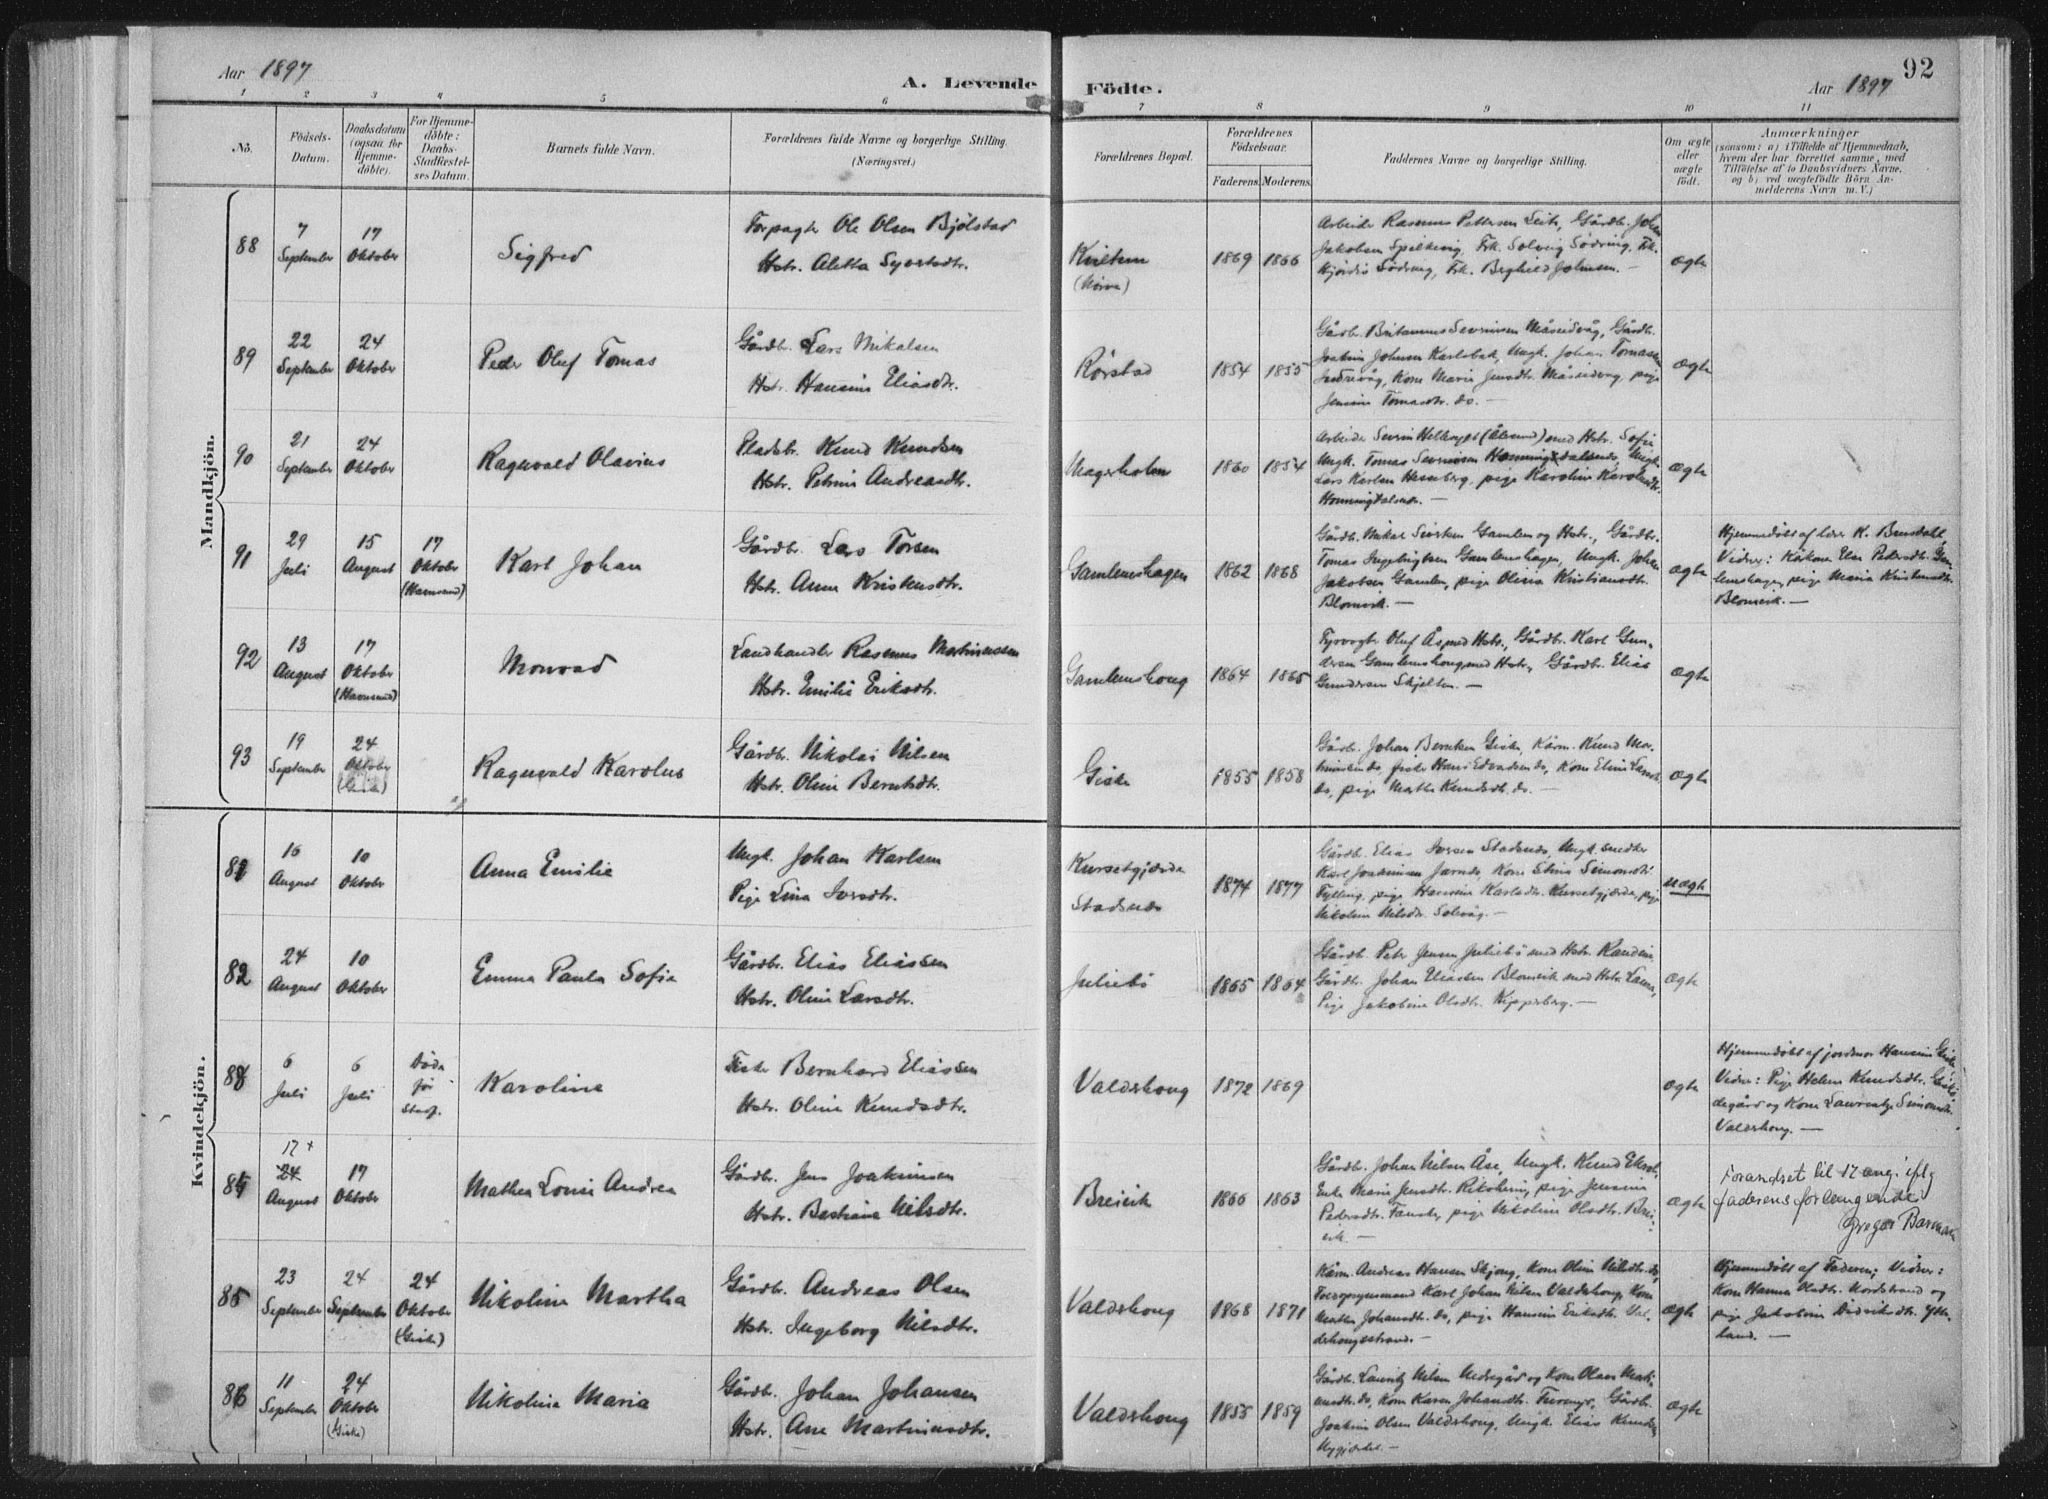 Aar 1897
A. Levende Födte.
Aar 1897
92
1 2 3 4 5 6 7 8 9 10 11
No.
Födsels-
Datum.
Daabsdatum
(ogsaa for
Hjemme-
döbte).
For Hjemme-
döbte:
Daabs-
Stadfæstel-
ses Datum.
Barnets fulde Navn.
Forældrenes fulde Navne og borgerlige Stilling.
(Næringsvei.)
Forældrenes Bopæl.
Forældrenes
Födselsaar.
Faderens. Moderens.
Faddernes Navne og borgerlige Stilling.
Om ægte
eller
uægte
födt.
Anmærkninger
(saasom: a) i Tilfælde af Hjemmedaab,
hvem der har forrettet samme, med
Tilföielse af to Daabsvidners Navne,
og b) ved uægtefödte Börn An-
melderens Navn m.V.)
Mandkjön.
88
7
September
17
Oktober
Sigfred
Forpagter Ole Olsen Bjölstad
Hstr. Aletta Syvertsdtr.
(Nörve)
1869 1866
Arbeider Rasmus Pettersen Gårdb. John
Jakobsen Spilkevig, Frk. Solveig Södring, Frk.
Hjördis Södring, Frk. Borghild Johnsen. —
Ægte
89
22
September
24
Oktober
Peder Oluf Tomas
Gårdbr. Lars Mikalsen
Hstr. Hansine Eliasdtr.
Rörstad
1854 1855
Gårdb. Severinsen Måseidvåg, Gårdb.
Joakim Johnsen Karlsbak, Ungk. Johan Tomassen
Kone Marie Jensdtr. Måseidvåg, pige
Jensine Tomasdtr. do. —
Ægte
90
21
September
24
Oktober
Ragnvald Olavius
Pladsbr. Knud Knudsen
Hstr. Petrine Andreasdtr.
Magerholm
1860 1854
Arbeider Severin (Ålesund) med Hstr. Sofie
Ungk. Tomas Severinsen Honningdalsnes, Ungk.
Lars Karlsen Hesseberg, pige Karoline Karolusdtr.
Honningdalsnes. —
Ægte
91
29
Juli
15
August
17
Oktober
(Havnsund)
Karl Johan
Gårdbr. Lars Torsen
Hstr. Anne Kristensdtr.
Gamlemshagen
1862 1868
Gårdb. Mikal Sivertsen Gamlem og Hstr., Gårdbr.
Tomas Ingebrigtsen Gamlemshagen, Ungk. Johan
Jakobsen Gamlem, pige Olivia Kristiansdtr.
Blomvik. —
Ægte
Hjemmedöbt af lærer K. Brusdal,
Vidner: Kårkone Else Pedersdtr. Gam-
lemshagen, pige Maria Kristensdtr.
Blomvik. —
92
13
August
17
Oktober
(Havnsund)
Monrad
Landhandler Rasmus Martinussen
Hstr. Emilie Eriksdtr.
Gamlemshoug
1864 1865
Fyrvogter Oluf Ås med Hstr., Gårdbr. Karl Gun-
dersen Gamlemshoug med Hstr., Gårdbr. Elias
Gundersen Skjelten. —
Ægte
93
19
September
24
Oktober
(Giske)
Ragnvald Karolus
Gårdbr. Nikolai Nilsen
Hstr. Oline Berntsdtr.
Giske
1855 1858
Gårdbr. Johan Berntsen Giske, Kårm. Knud Mar-
tinusen do, fisker Hans Edvardsen do, Kone Eline Larsdtr.
do, pige Marthe Knudsdtr. do. —
Ægte
Kvindekjön.
81
16
August
10
Oktober
Anna Emilie
Ungk. Johan Karlsen
Pige Lina Iversdtr.
Kursetgjærde
Stadsnes
1874 1877
Gårdb. Elias Iversen Stadsnes, Ungk. smed
Karl Joakimsen Jarnes, Kone Eline Simonsdtr.
Fylling, pige Hansine Karlsdtr. Kursetgjærde, pige
Nikoline Nilsdtr. Solevåg. —
uægte
82
24
August
10
Oktober
Emma Paula Sofie
Gårdbr. Elias Eliassen
Hstr. Oline Larsdtr.
Juliebö
1865 1864
Gårdb. Peter Jensen Juliebö med Hstr. Randine
Gårdb. Johan Eliassen Blomvik med Hstr. Laura,
Pige Jakobine Olsdtr. Kipperberg. —
Ægte
83
6
Juli
6
Juli
Död
för
Stadf.
Karoline
Fisker Bernhard Eliassen
Hstr. Oline Knudsdtr.
Valdshoug
1872 1869
Ægte
Hjemmedöbt af jordmor Hansine Giske
Vidner: Pige Helene Knudsdtr. Giske
degård og Kone Laurentze Simonsdtr.
Valdshoug. —
84
17 +
24
August
17
Oktober
Mathea Lovise Andrea
Gårdbr. Jens Joakimsen
Hstr. Bastiane Nilsdtr.
Breivik
1866 1863
Gårdbr. Johan Nilsen Åse, Ungk. Knud
Enke Marie Jensdtr. pige Jensine
Pedersdtr. pige Nikoline Olsdtr. Brei-
vik. —
Ægte
Forandret til 17 aug. iflg
faderens forlangende
Gregor Barman
85
23
September
24
September
24
Oktober
(Giske)
Nikoline Martha
Gårdbr. Andreas Olsen
Hstr. Ingeborg Nilsdtr.
Valdshoug
1868 1871
Kårm. Andreas Hansen Skjong, Kone Oline Nilsdtr. do,
Karl Johan Nilsen Valdshoug, Kone
Mathea Johansdtr. do, pige Hansine Eriksdtr. Val-
dshougstrand. —
Ægte
Hjemmedöbt af Faderen; Vidner:
Kone Hanna Olsdtr. Nordstrand og
pige Jakobine Didriksdtr. Ytter-
land. —
86
11
September
24
Oktober
(Giske)
Nikoline Maria
Gårdbr. Johan Johansen
Hstr. Ane Martinusdtr.
Valdshoug
1855 1859
Gårdb. Lauritz Nilsen og Kone Olave Marti-
nusdtr. do, Kone Karen Johansdtr. Gårdb.
Joakim Olsen Valdshoug, Ungk. Elias Knudsen
Nygjærdet. —
Ægte